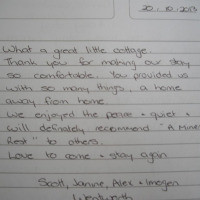 20.10.2013
What a great little cottage.
Thank you for making our stay
so comfortable. You provided us
with so many things, a home
away from home.
We enjoyed the peace + quiet +
will definately recommend "A Miners
Rest" to others.
Love to come + stay again
Scott, Janine, Alex + Imogen
Wentworth